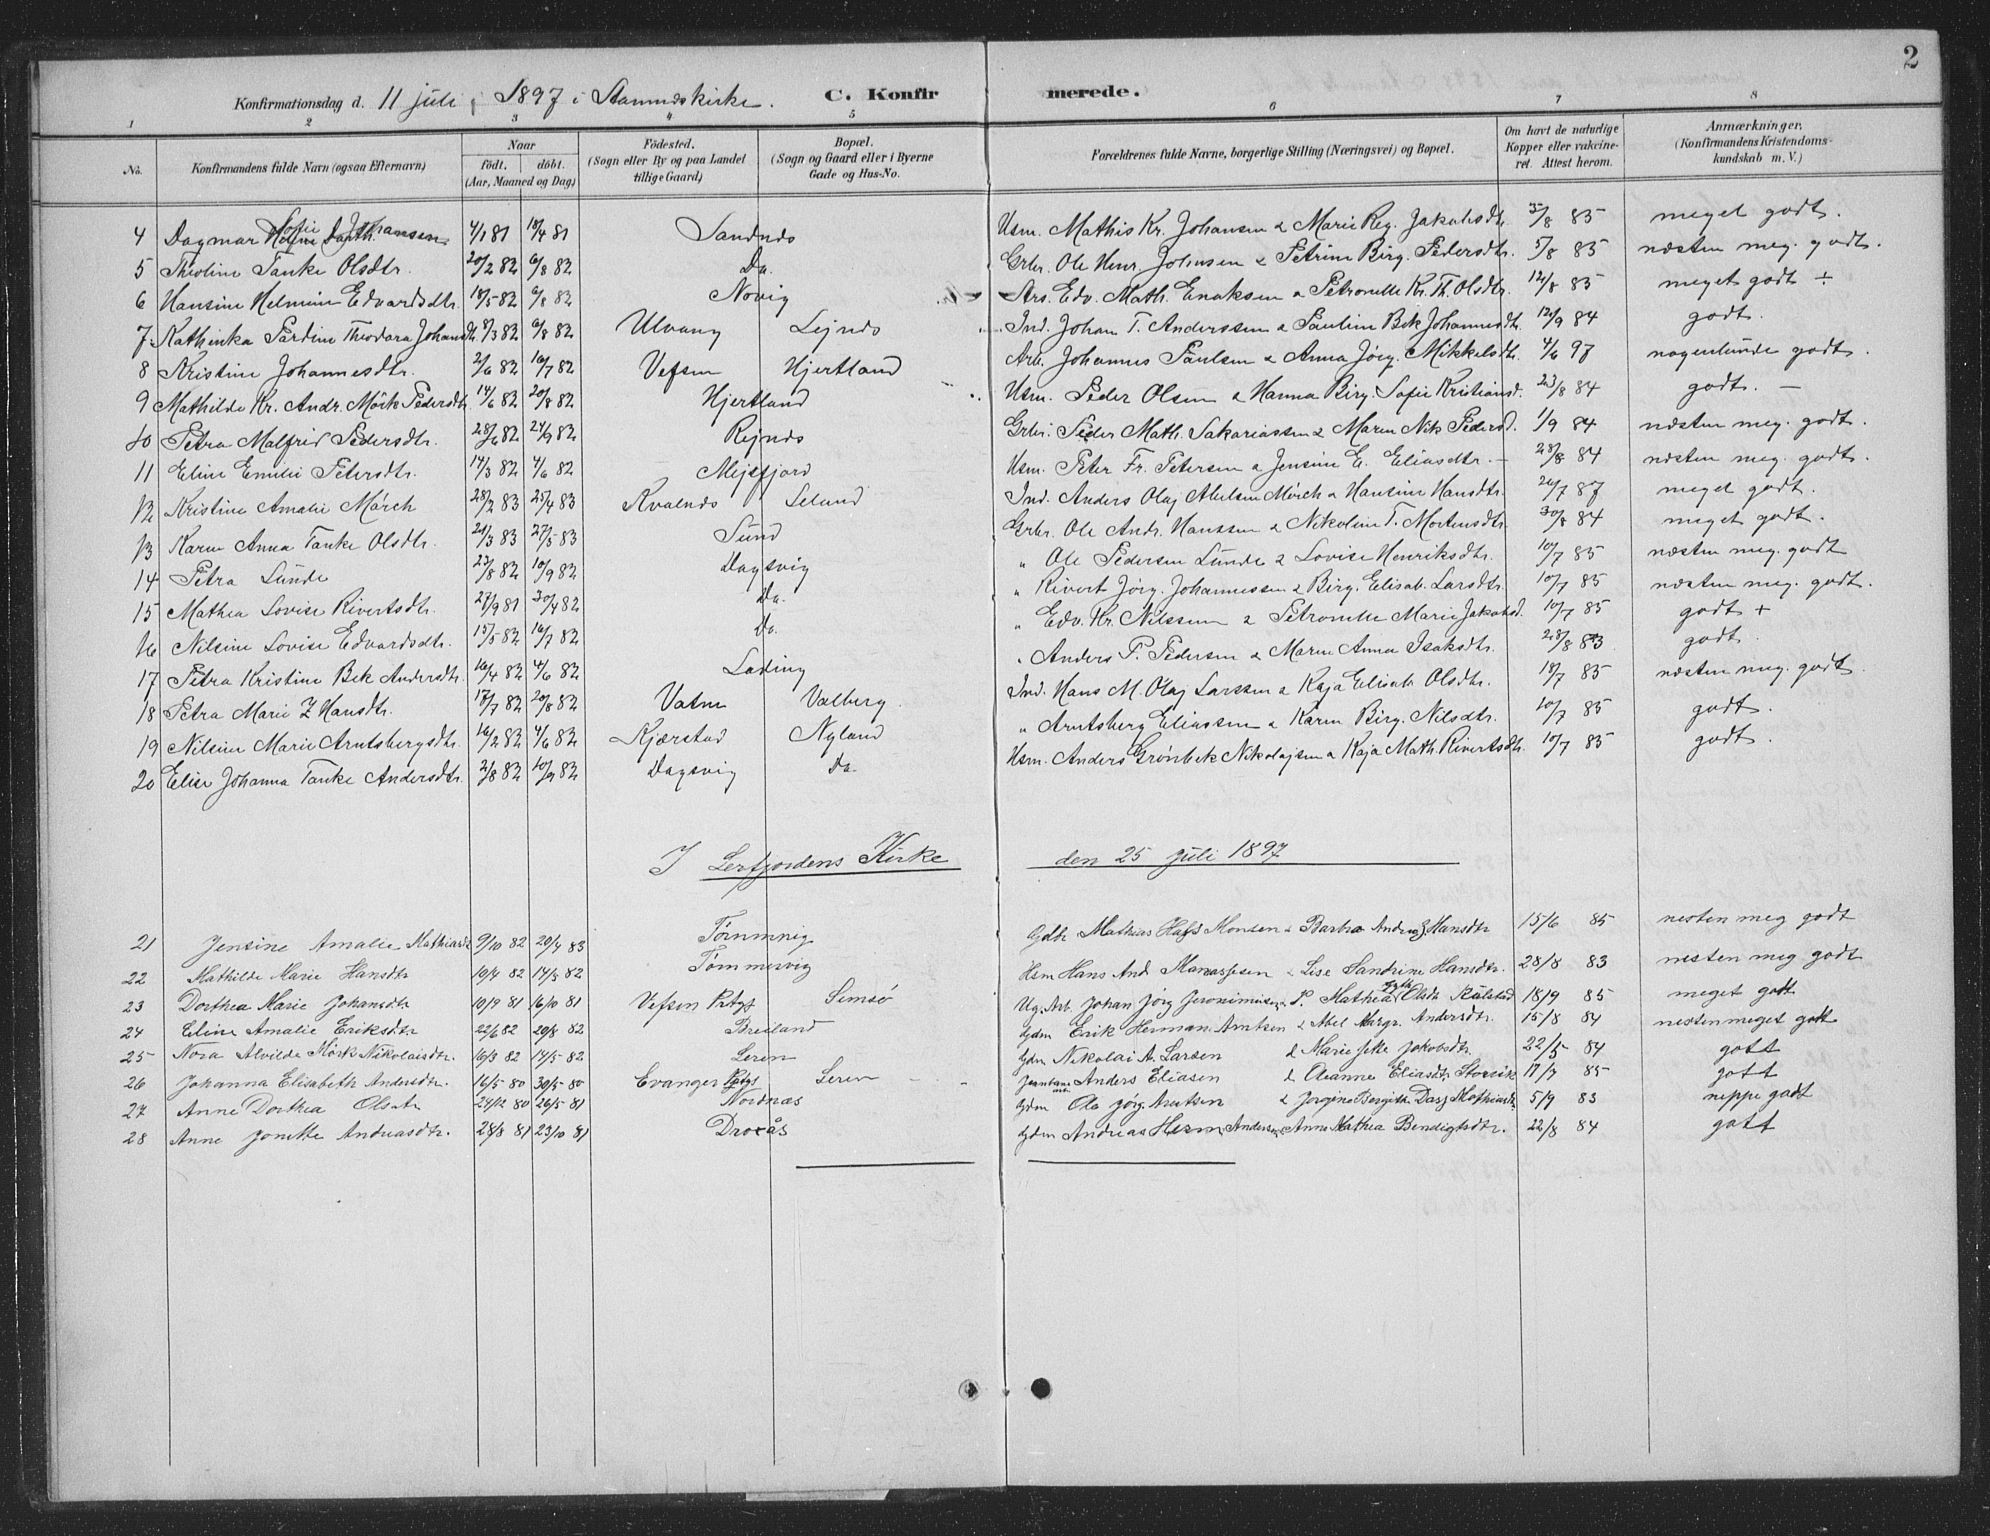 2
Konfirmationsdag d. 11 juli 1897 i Stamnæskirke. C. Konfirmerede.
1 2 3 4 5 6 7 8
No. Konfirmandens fulde Navn (ogsaa Efternavn) Naar født. døbt. (Aar, Maaned og Dag) Fødested. (Sogn eller By og paa Landet tillige Gaard) Bopæl. (Sogn og Gaard eller i Byerne Gade og Hus-No. Forældrenes fulde Navne, borgerlige Stilling (Næringsvei) og Bopæl. Om havt de naturlige Kopper eller vakcineret. Attest herom. Anmærkninger. (Konfirmandens Kristendomskundskab m. V.)
4 Dagmar Sofie Johansen 4/1 81 18/4 81 Sandnes Usm. Mathis Kr. Johansen & Marie Reg. Jakobsdtr. 5/8 85 meget godt.
5 Theoline Tanke Olsdtr. 20/2 82 6/8 82 Do. Grbr. Ole Henr. Johnsen & Petrine Birg. Pedersdtr. 5/8 85 næsten meg. godt.
6 Hansine Helmine Edvardsdtr. 18/5 82 6/8 82 Novig Ars. Edv. Math. Enoksen & Petronelle Kr. Th. Olsdtr. 12/8 85 meget godt ÷
7 Kathinka Pauline Theodora Johansdtr. 8/3 82 6/8 82 Ulvang Lejnes Ind. Johan T. Anderssen & Pauline Bek Johannesdtr. 12/9 84 godt.
8 Kristine Johannesdtr. 2/6 82 16/7 82 Vefsen Hjertland Arb. Johannes Paulsen & Anna Jørg. Mikkelsdtr. 4/6 97 nogenlunde godt.
9 Mathilde Kr. Andr. Mörk Pedersdtr. 14/6 82 20/8 82 Hjertland Usm. Peder Olsen & Hanna Birg. Sofie Kristiansd. 23/8 84 godt. -
10 Petra Malfrid Pedersdtr. 28/6 82 24/9 82 Rejnes Grbr. Peder Math. Sakariassen & Maren Nik Pedersd. 1/9 84 næsten meg. godt.
11 Eline Emilie Petersdtr. 14/3 82 4/6 82 Mejsfjord Usm. Peter Fr. Petersen & Jensine E. Eliasdtr. - 28/8 84 næsten meg. godt.
12 Kristine Amalie Mörch 28/2 83 25/4 83 Kvalnes Leland Ind. Anders Olaj Abelsen Mörch & Hansine Hansdtr. 26/7 87 meget godt.
13 Karen Anna Tanke Olsdtr. 21/3 83 27/5 83 Sund Grbr. Ole Andr. Hanssen & Nikoline T. Mortensdtr. 30/8 84 meget godt.
14 Petra Lunde 23/8 82 10/9 82 Dagsvig " Ole Pedersen Lunde & Lovise Henriksdtr. 10/7 85 næsten meg. godt
15 Mathea Lovise Rivertsdtr. 27/9 81 30/4 82 Do. " Rivert Jörg. Johannessen & Birg. Elisab. Larsdtr. 10/7 85 næsten meg. godt.
16 Nilsine Lovise Edvardsdtr. 15/5 82 16/7 82 Do. " Edv. Kr. Nilssen & Petronelle Marie Jakobsd. 10/7 85 godt +
17 Petra Kristine Bek Andersdtr. 16/4 82 4/6 82 Lading " Anders P. Pedersen & Maren Anna Isaksdtr. 28/8 83 godt.
18 Petra Marie Z Hansdtr. 17/7 82 20/8 82 Vatne Valberg. Ind. Hans M. Olaj Larssen & Kaja Elisab. Olsdtr. 18/7 85 næsten meg. godt
19 Nilsine Marie Arntsbergsdtr. 16/2 82 4/6 82 Kjærstad Nyland " Arntsberg Eliassen & Karen Birg. Nilsdtr. 10/7 85 godt.
20 Elise Johanna Tanke Andersdtr. 2/8 82 10/9 82 Dagsvig Do. Usm. Anders Grönbek Nikolajsen & Kaja Math. Rivertsdtr. 10/7 85 godt.
I Lerfjordens Kirke den 25 juli 1897
21 Jensine Amalie Mathiasdtr 9/10 82 20/4 83 Tömmervig Gdbr Mathias Hafs Monsen & Barbra Andrea Hansdtr 15/6 85 nesten meg godt
22 Mathilde Marie Hansdtr 19/4 82 14/5 82 Tömmervig Hsm Hans And. Manassesen & Lise Sandrine Hansdtr. 28/8 83 nesten meg godt
23 Dorthea Marie Johansdtr 10/9 81 16/10 81 Vefsen Prtgj Simsö Ug. Arb. Johan Jörg Jeronimusen & P. Mathea Olsdr Kulstad 18/9 85 meget gott
24 Eline Amalie Eriksdtr 22/6 82 20/8 82 Breiland Gdm Erik Herman. Arntsen & Abel Margr. Andersdtr. 15/8 84 nesten meget gott
25 Nora Alvilde Mörk Nikolaisdtr. 16/3 82 14/5 82 Leren Gdm Nikolai A. Larsen & Marie Jakobsdtr 22/5 84 gott
26 Johanna Elisabeth Andersdtr. 16/5 80 30/5 80 Evanger Prtgj Leren - - Jernbane Anders Eliasen & Oleanne Eliasdtr Storvik 17/7 85 gott
27 Anne Dorthea Olsdtr 24/12 80 26/5 81 Nordnæs Gdm Ole Jörg. Arntsen & Jörgine Bergithe Mathiasdtr 5/9 83 neppe godt
28 Anne Jonette Andreasdtr. 28/8 81 23/10 81 Drevås Gdm Andreas Herm. Andersen, Anne Mathea Bendigtsdtr. 22/8 84 gott